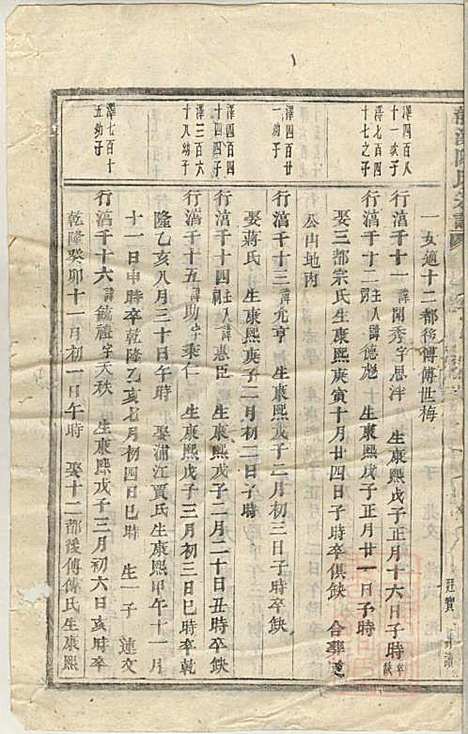 一女適十二都後傅傅世梅
澤四百八十一次子
行滈千十一諱聞秀字思泮 生康熙戊子正月十六日子時卒缺
澤七百四十七之子
行滈千十二諱主人德彪 生康熙戊子正月廿一日子時
娶三都宗氏生康熙庚寅十月廿四日子時卒俱缺 合葬
公山地內
澤四百廿一幼子
行滈千十三諱允亨 生康熙戊子二月初三日子時卒缺
娶蔣氏 生康熙庚子二月初二日子時
澤四百四十四子
行滈千十四諱主人惠臣 生康熙戊子二月二十日丑時卒缺
澤三百六十八幼子
行滈千十五諱助字秉仁 生康熙戊子三月初三日巳時卒乾
隆乙亥八月三十日午時 娶浦江賈氏生康熙甲午十一月
十一日申時卒乾隆乙亥七月初四日巳時 生一子 連文
澤七百十五幼子
行滈千十六諱毓禮字天秩 生康熙戊子三月初六日亥時卒
乾隆癸卯十一月初一日午時 娶十二都後傅傅氏生康熙